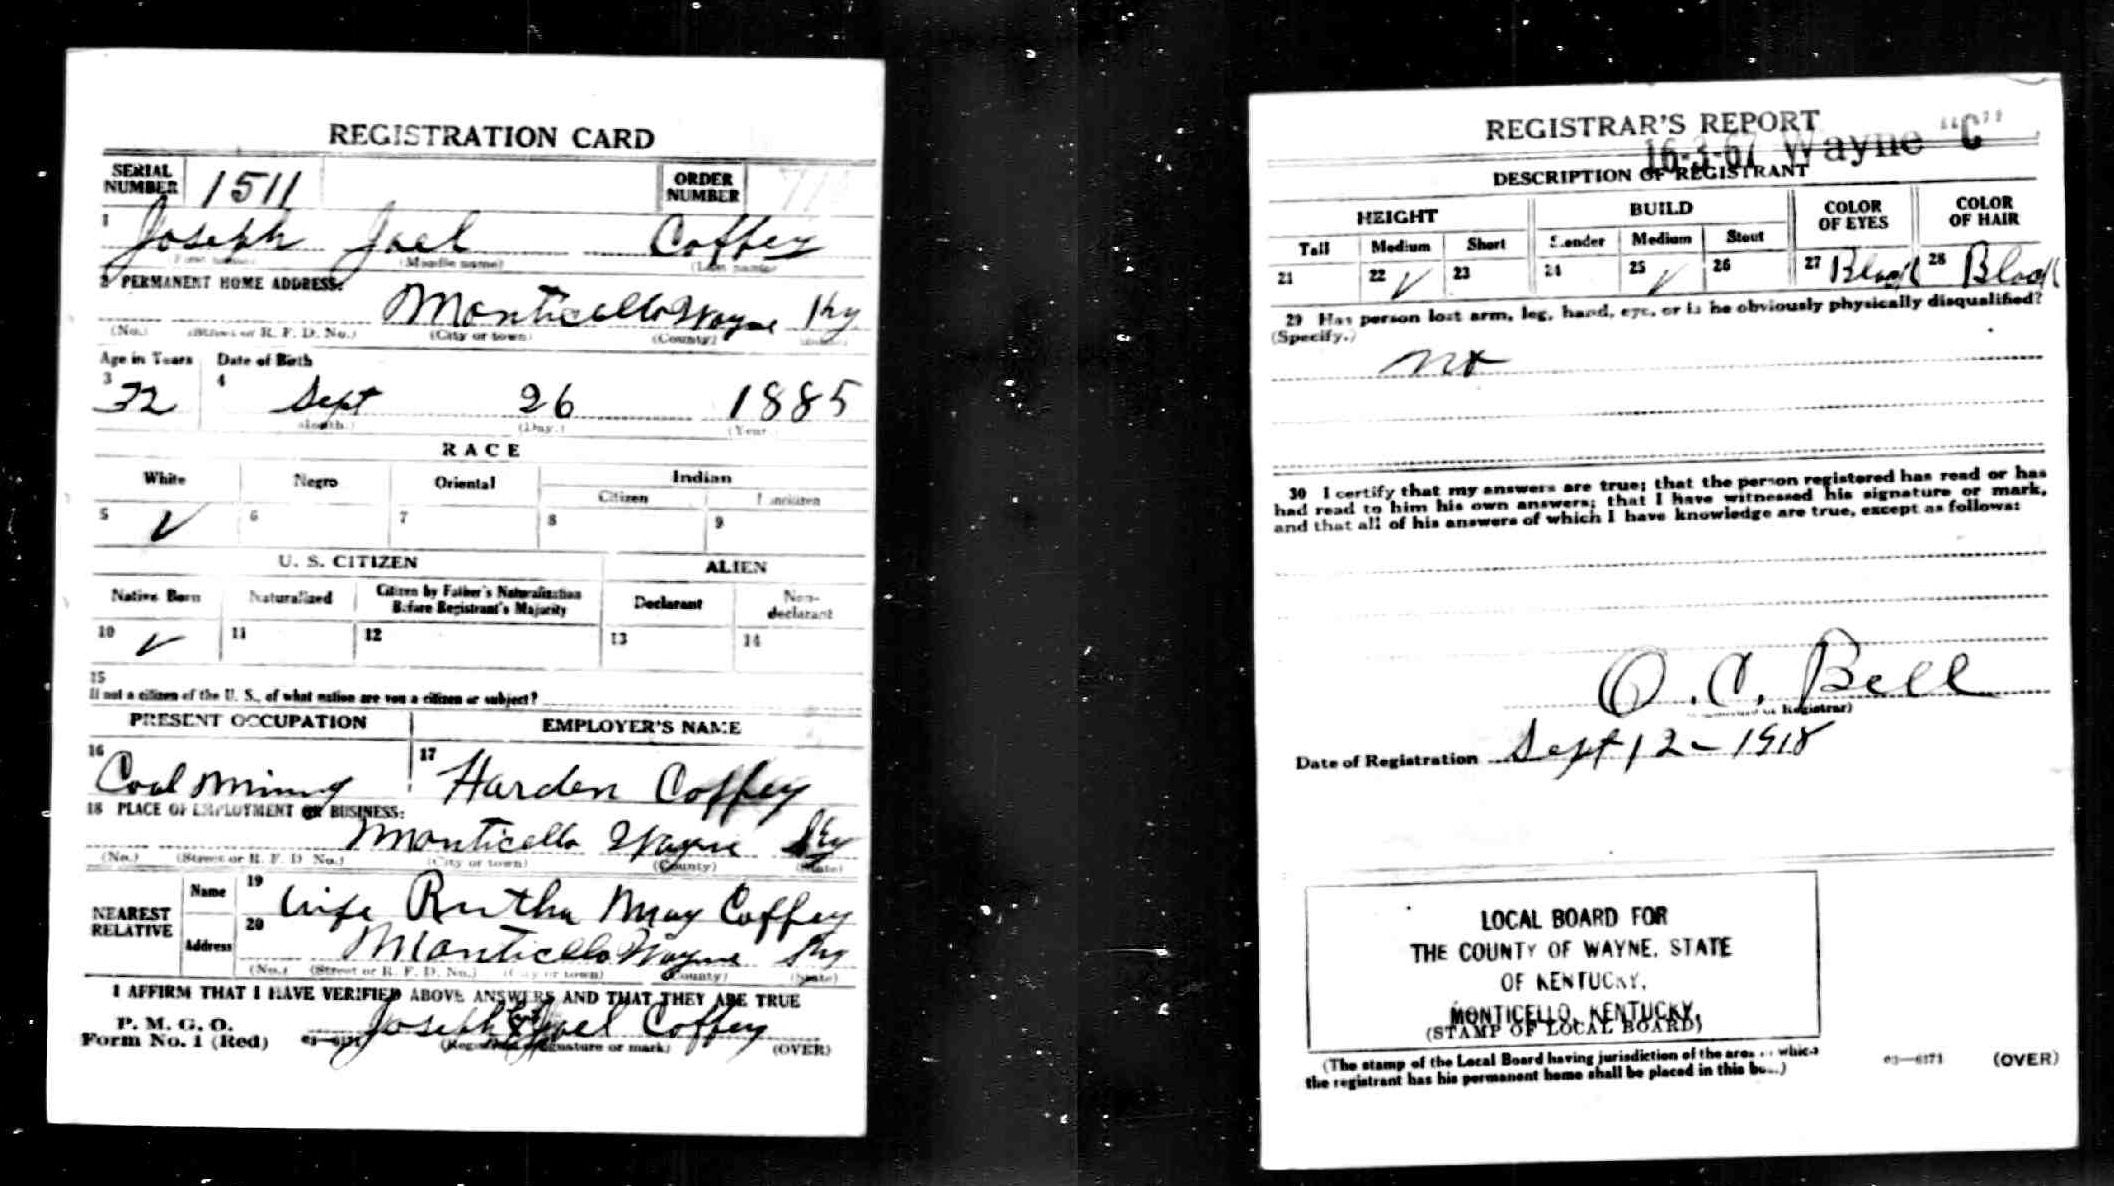 REGISTRATION CARD
SERIAL NUMBER 1511 ORDER NUMBER
1 Joseph Joel Coffey
(First name) (Middle name) (Last name)
2 PERMANENT HOME ADDRESS:
Monticello Wayne Ky
(No.) (Street or R. F. D. No.) (City or town) (County)
Age in Years Date of Birth
3 32 4 Sept 26 1885
(Month.) (Day.) (Year.
RACE
White Negro Oriental Indian
Citizen Noncitizen
5 ✓ 6 7 8 9
U. S. CITIZEN ALIEN
Native Born Naturalized Citizen by Father's Naturalization Before Registrant's Majority Declarant Non-declarant
10 ✓ 11 12 13 14
15
If not a citizen of the U. S., of what nation are you a citizen or subject?
PRESENT OCCUPATION EMPLOYER'S NAME
16 Coal Mining 17 Harden Coffey
18 PLACE OF EMPLOYMENT OR BUSINESS:
Monticello Wayne Ky
(No.) (Street or R. F. D. No.) (City or town) (County) (State)
NEAREST RELATIVE Name 19 Wife Rutha May Coffey
Address 20 Monticello Wayne Ky
(No.) (Street or R. F. D. No.) (City or town) (County) (State)
I AFFIRM THAT I HAVE VERIFIED ABOVE ANSWERS AND THAT THEY ARE TRUE
P. M. G. O.
Form No. 1 (Red) Joseph Joel Coffey
(Registrant's signature or mark) (OVER)
REGISTRAR'S REPORT
16-3-67 Wayne "C"
DESCRIPTION OF REGISTRANT
HEIGHT BUILD COLOR OF EYES COLOR OF HAIR
Tall Medium Short Slender Medium Stout
21 22 ✓ 23 24 25 ✓ 26 27 Black 28 Black
29 Has person lost arm, leg, hand, eye, or is he obviously physically disqualified?
(Specify.)
no
30 I certify that my answers are true; that the person registered has read or has
had read to him his own answers; that I have witnessed his signature or mark,
and that all of his answers of which I have knowledge are true, except as follows:
O. C. Bell
Registrar)
Date of Registration Sept 12 - 1918
LOCAL BOARD FOR
THE COUNTY OF WAYNE, STATE
OF KENTUCKY,
MONTICELLO, KENTUCKY.
(STAMP OF LOCAL BOARD)
(The stamp of the Local Board having jurisdiction of the area in which
the registrant has his permanent home shall be placed in this box.)
03—6171 (OVER)